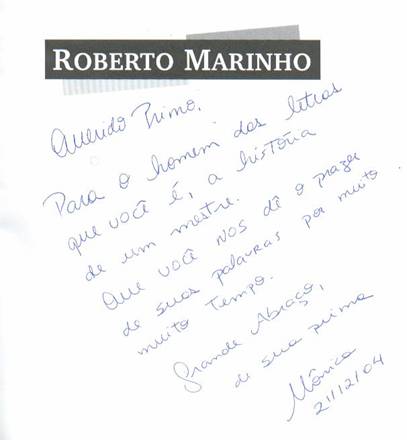 ROBERTO MARINHO
Querido Primo,
Para o homem das letras
que você é, a história
de um mestre.
Que você nos dê o prazer
de suas palavras por muito
muito tempo.
Grande Abraço,
de sua prima
Mônica
21/12/04